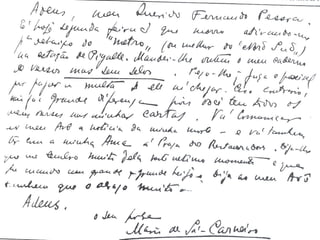 Adeus, meu Querido Fernando Pessoa.
É hoje segunda feira que morro atirando-me
para debaixo do "metro" (ou melhor do "Nord Sud")
na estação de Pigalle. Mandei-lhe ontem o meu caderno
de versos mas sem selos. Peço-lhe faça o possível
por pagar a multa se ele aí chegar. Caso contrário,
não faz grande diferença pois você tem todos os
meus versos nas minhas cartas. Vá comunicar
ao meu Avô a notícia da minha morte — e vá também
ter com a minha Ama à Praça dos Restauradores. Diga-lhe
que me lembro muito dela neste último momento e que
lhe mando um grande, grande beijo. Diga ao meu Avô
também que o abraço muito.
Adeus.
o seu pobre
Mário de Sá-Carneiro